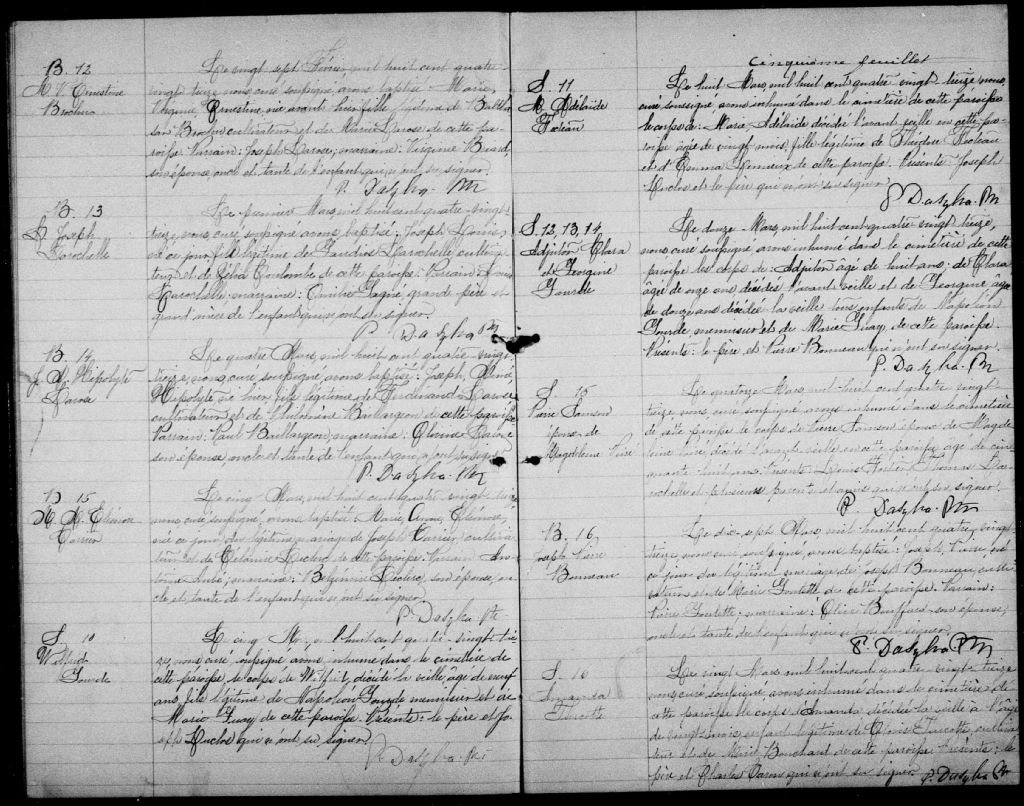 B. 12
M. V. Ernestine
Brochu
Le vingt sept Février mil huit cent quatre-
vingt treize, nous, curé soussigné, avons baptisé Marie,
Ernestine, née avant hier, fille légitime de Baltha-
sar Brochu cultivateur et de Marie Larose de cette pa-
roisse. Parrain: Joseph Larose; marraine: Virginie Béard,
son épouse, oncle et tante de l'enfant qui n'ont su signer.
P. Dassylva. Ptr
B. 13
J. Joseph
Larochelle
Le premier Mars, mil huit cent quatre-vingt-
treize, nous, curé soussigné, avons baptisé: Joseph Louis,
né ce jour, fils légitime de Gaudiose Larochelle cultiva-
teur et de Coulombe de cette paroisse. Parrain: Louis
Larochelle; marraine: Emilie Gagné, grand-père et
grand'mère de l'enfant qui n'ont su signer.
P. Dassylva Ptr
B. 14
J. Hipolyte
Le quatre Mars, mil huit cent quatre-vingt
treize, nous, curé soussigné, avons baptisé: Joseph,
Hipolyte, né hier, fils légitime de Ferdinand
cultivateur et de Philomène Baillargeon de cette paroisse.
Parrain: Paul Baillargeon; marraine:
son épouse, oncle et tante de l'enfant qui n'ont su signer.
P. Dassylva. Ptr
B 15
M. A. Eléonore
Carrier
Le cinq Mars, mil huit cent quatre vingt treize
nous, curé soussigné, avons baptisé: Marie, Anne, Eléonore,
née ce jour, du légitime mariage de Joseph Carrier, cultiva-
teur et de de cette paroisse. Parrain:
Aubé; marraine: son épouse, on-
cle et tante de l'enfant qui n'ont su signer.
P. Dassylva Ptr
S. 10
Wilfrid
Gourde
Le cinq Mars, mil huit cent quatre-vingt-trei-
ze, nous, curé soussigné avons inhumé dans le cimetière de
cette paroisse le corps de Wilfrid, décédé la veille, âgé de neuf
ans, fils légitime de Napoléon Gourde menuisier et de
Marie Guay de cette paroisse. Présents: le père et Jo-
seph Duclos qui n'ont su signer.
P. Dassylva. Ptr
cinquième feuillet
S. 11
M. Adélaïde
Le huit Mars, mil huit cent quatre vingt treize, nous,
curé soussigné avons inhumé dans le cimetière de cette paroisse
le corps de Marie-Adélaïde décédée l'avant veille en cette pa-
roisse âgée de vingt mois, fille légitime de Théodore
et d'Emma Lemieux de cette paroisse. Présents: Joseph
Duclos et le père qui n'ont su signer.
P. Dassylva. Ptr
S. 12, 13, 14
Adjutor, Clara
et Georgine
Gourde
Le douze Mars, mil huit cent quatre vingt treize,
nous, curé soussigné, avons inhumé dans le cimetière de cette
paroisse les corps de: Adjutor âgé de huit ans; de Clara
âgée de onze ans décédés l'avant veille et de Georgine âgée
de douze ans décédée la veille tous enfants de Napoléon
Gourde menuisier et de Marie Guay, de cette paroisse.
Présents: le père et Pierre Bonneau qui n'ont su signer.
P. Dassylva. Ptr
S. 15
Pierre Samson
époux de
Magdeleine
Le quatorze Mars, mil huit cent quatre vingt
treize, nous, curé soussigné, avons inhumé dans le cimetière
de cette paroisse le corps de Pierre Samson époux de Magde-
leine décédé l'avant veille en cette paroisse âgé de cin-
quante huit ans. Présents: Louis Thomas La-
rochelle et plusieurs parents et amis qui n'ont su signer.
P. Dassylva. Ptr
B. 16
Joseph Pierre
Bonneau
Le dix sept Mars, mil huit cent quatre vingt
treize, nous, curé soussigné, avons baptisé: Joseph, Pierre, né
ce jour du légitime mariage de Joseph Bonneau culti-
vateur et de Marie Goulette de cette paroisse. Parrain:
Pierre Goulette; marraine: son épouse,
oncle et tante de l'enfant qui n'ont su signer.
P. Dassylva Ptr
S. 16
Amanda
Turcotte
Le vingt Mars, mil huit cent quatre vingt treize
nous, curé soussigné, avons inhumé dans le cimetière de
cette paroisse le corps d'Amanda décédée la veille à l'âge
de mois, enfant légitime de Turcotte, cultiva-
teur et de Marie Bouchard de cette paroisse. Présents: le
père et Charles Caron qui n'ont su signer. P. Dassylva Ptr